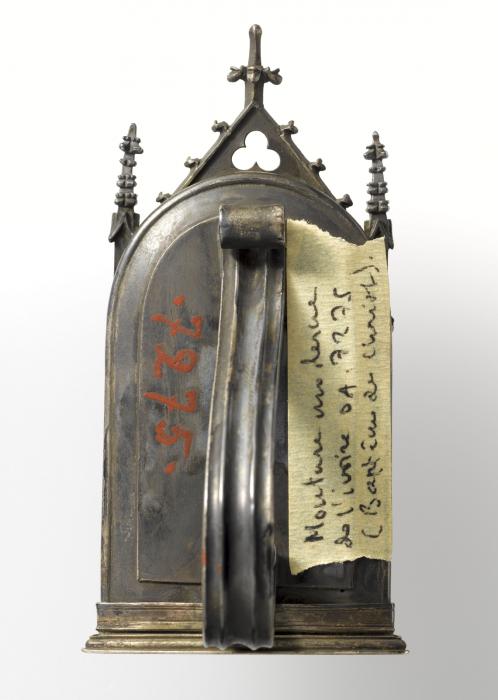 .7275.
Monture moderne
de l'ivoire OA. 7275
(Baptême du Christ).